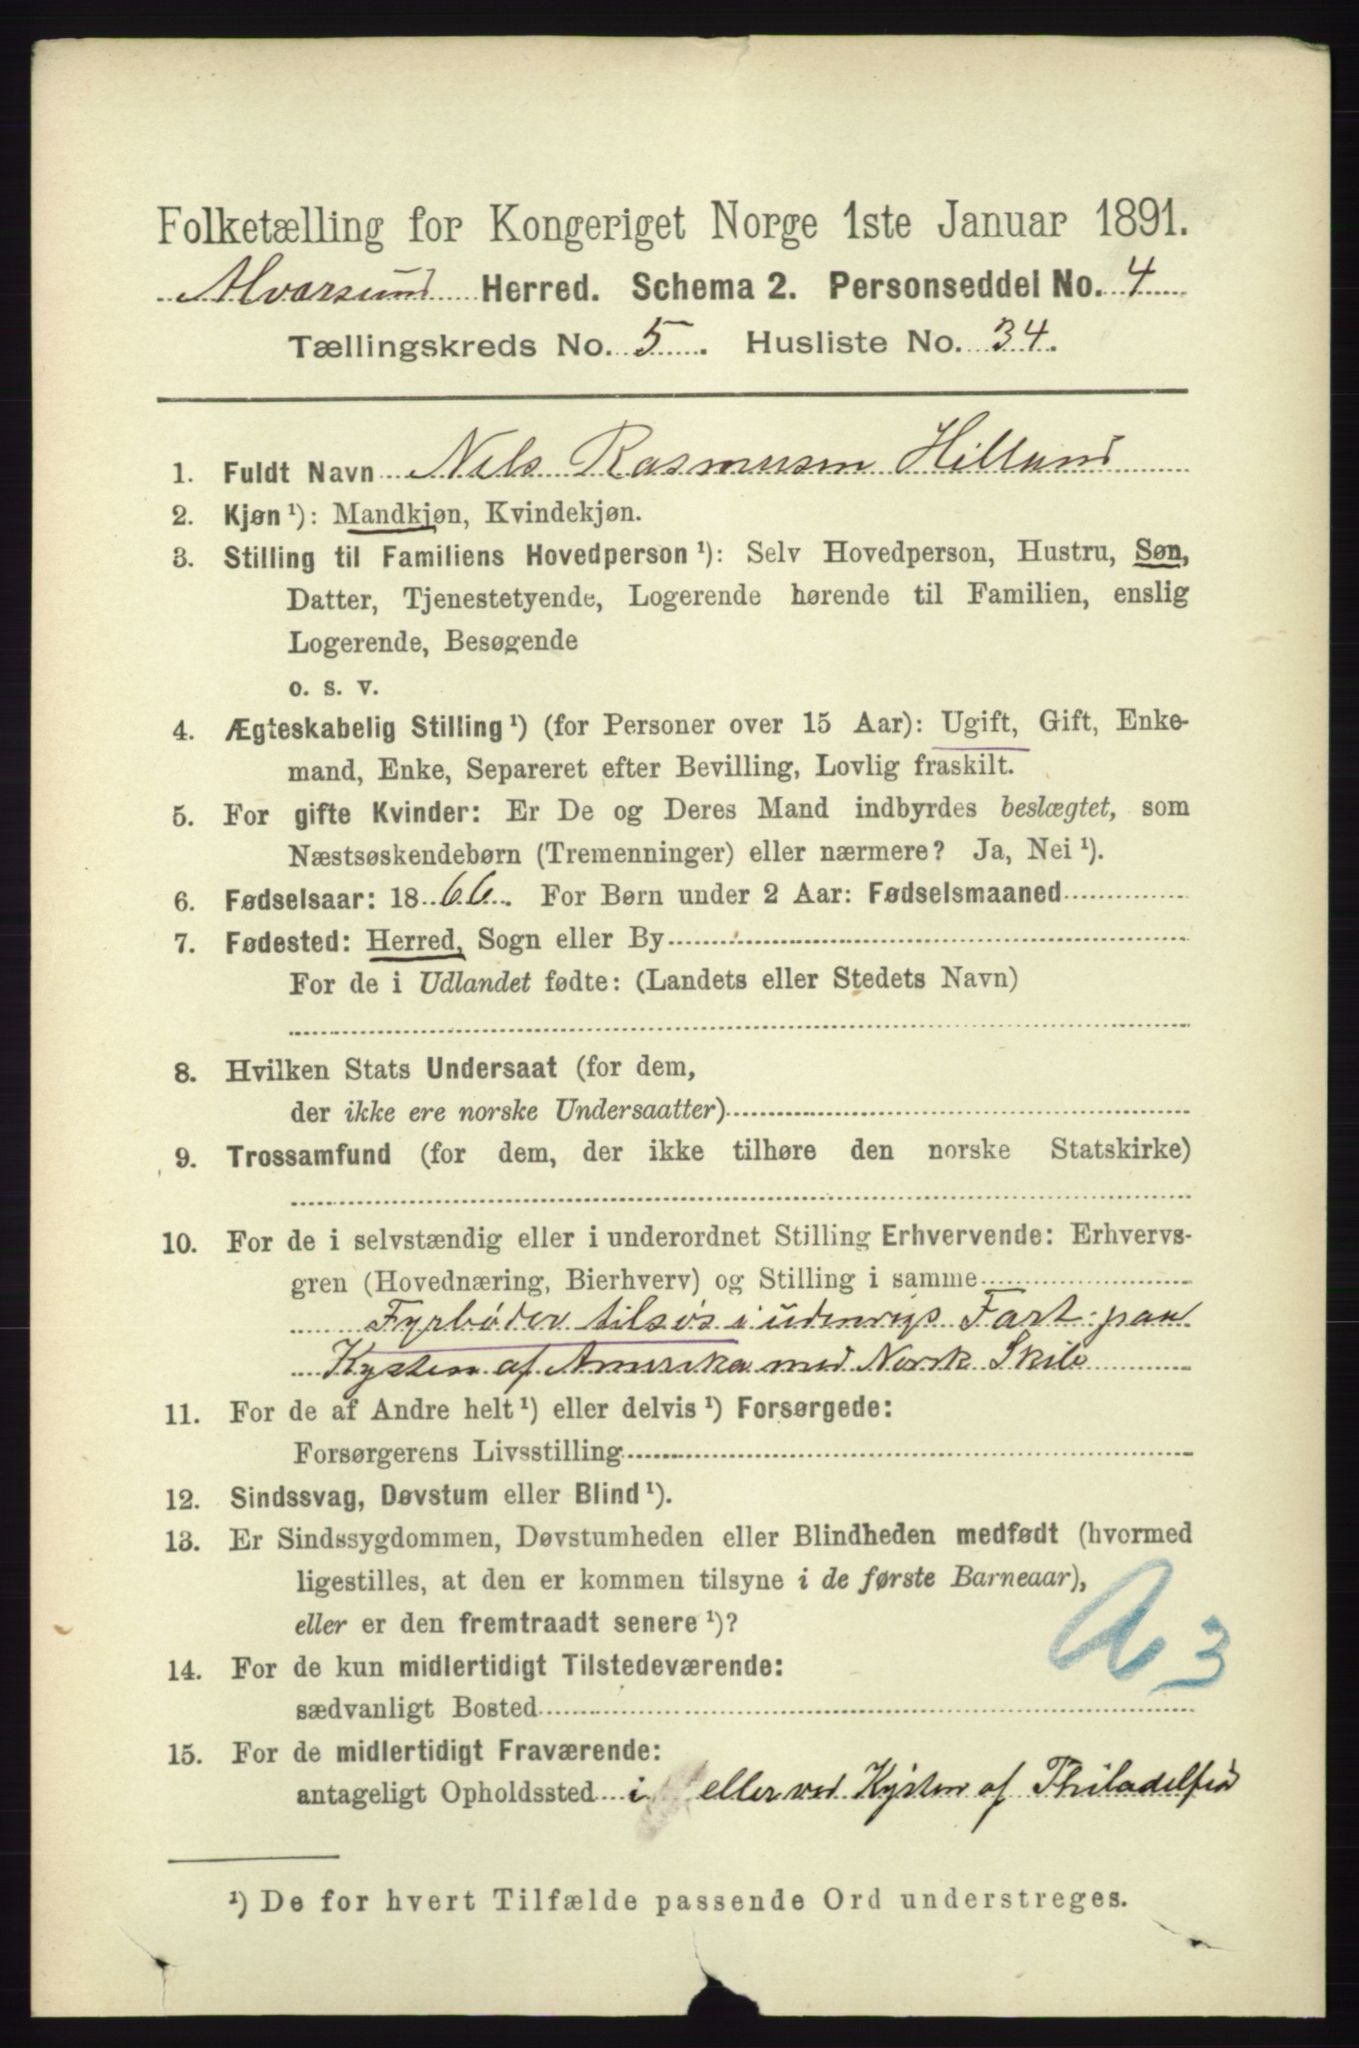 Folketælling for Kongeriget Norge 1ste Januar 1891.
Alversund Herred. Schema 2. Personseddel No. 4
Tællingskreds No. 5. Husliste No. 34.
1. Fuldt Navn Nils Rasmusen Hilland
2. Kjøn ¹): Mandkjøn, Kvindekjøn.
3. Stilling til Familiens Hovedperson ¹): Selv Hovedperson, Hustru, Søn,
Datter, Tjenestetyende, Logerende hørende til Familien, enslig
Logerende, Besøgende
o. s. v.
4. Ægteskabelig Stilling ¹) (for Personer over 15 Aar): Ugift, Gift, Enke-
mand, Enke, Separeret efter Bevilling, Lovlig fraskilt.
5. For gifte Kvinder: Er De og Deres Mand indbyrdes beslægtet, som
Næstsøskendebørn (Tremenninger) eller nærmere? Ja, Nei ¹).
6. Fødselsaar: 1866. For Børn under 2 Aar: Fødselsmaaned
7. Fødested: Herred, Sogn eller By
For de i Udlandet fødte: (Landets eller Stedets Navn)
8. Hvilken Stats Undersaat (for dem,
der ikke ere norske Undersaatter)
9. Trossamfund (for dem, der ikke tilhøre den norske Statskirke)
10. For de i selvstændig eller i underordnet Stilling Erhvervende: Erhvervs-
gren (Hovednæring, Bierhverv) og Stilling i samme
Fyrbøder tilsøs i udenrigs Fart paa
Kysten af Amerika med Norsk Skib
11. For de af Andre helt ¹) eller delvis ¹) Forsørgede:
Forsørgerens Livsstilling
12. Sindssvag, Døvstum eller Blind ¹).
13. Er Sindssygdommen, Døvstumheden eller Blindheden medfødt (hvormed
ligestilles, at den er kommen tilsyne i de første Barneaar),
eller er den fremtraadt senere ¹)?
14. For de kun midlertidigt Tilstedeværende:
sædvanligt Bosted
15. For de midlertidigt Fraværende:
antageligt Opholdssted i eller ved Kysten af Philadelfia
3
¹) De for hvert Tilfælde passende Ord understreges.